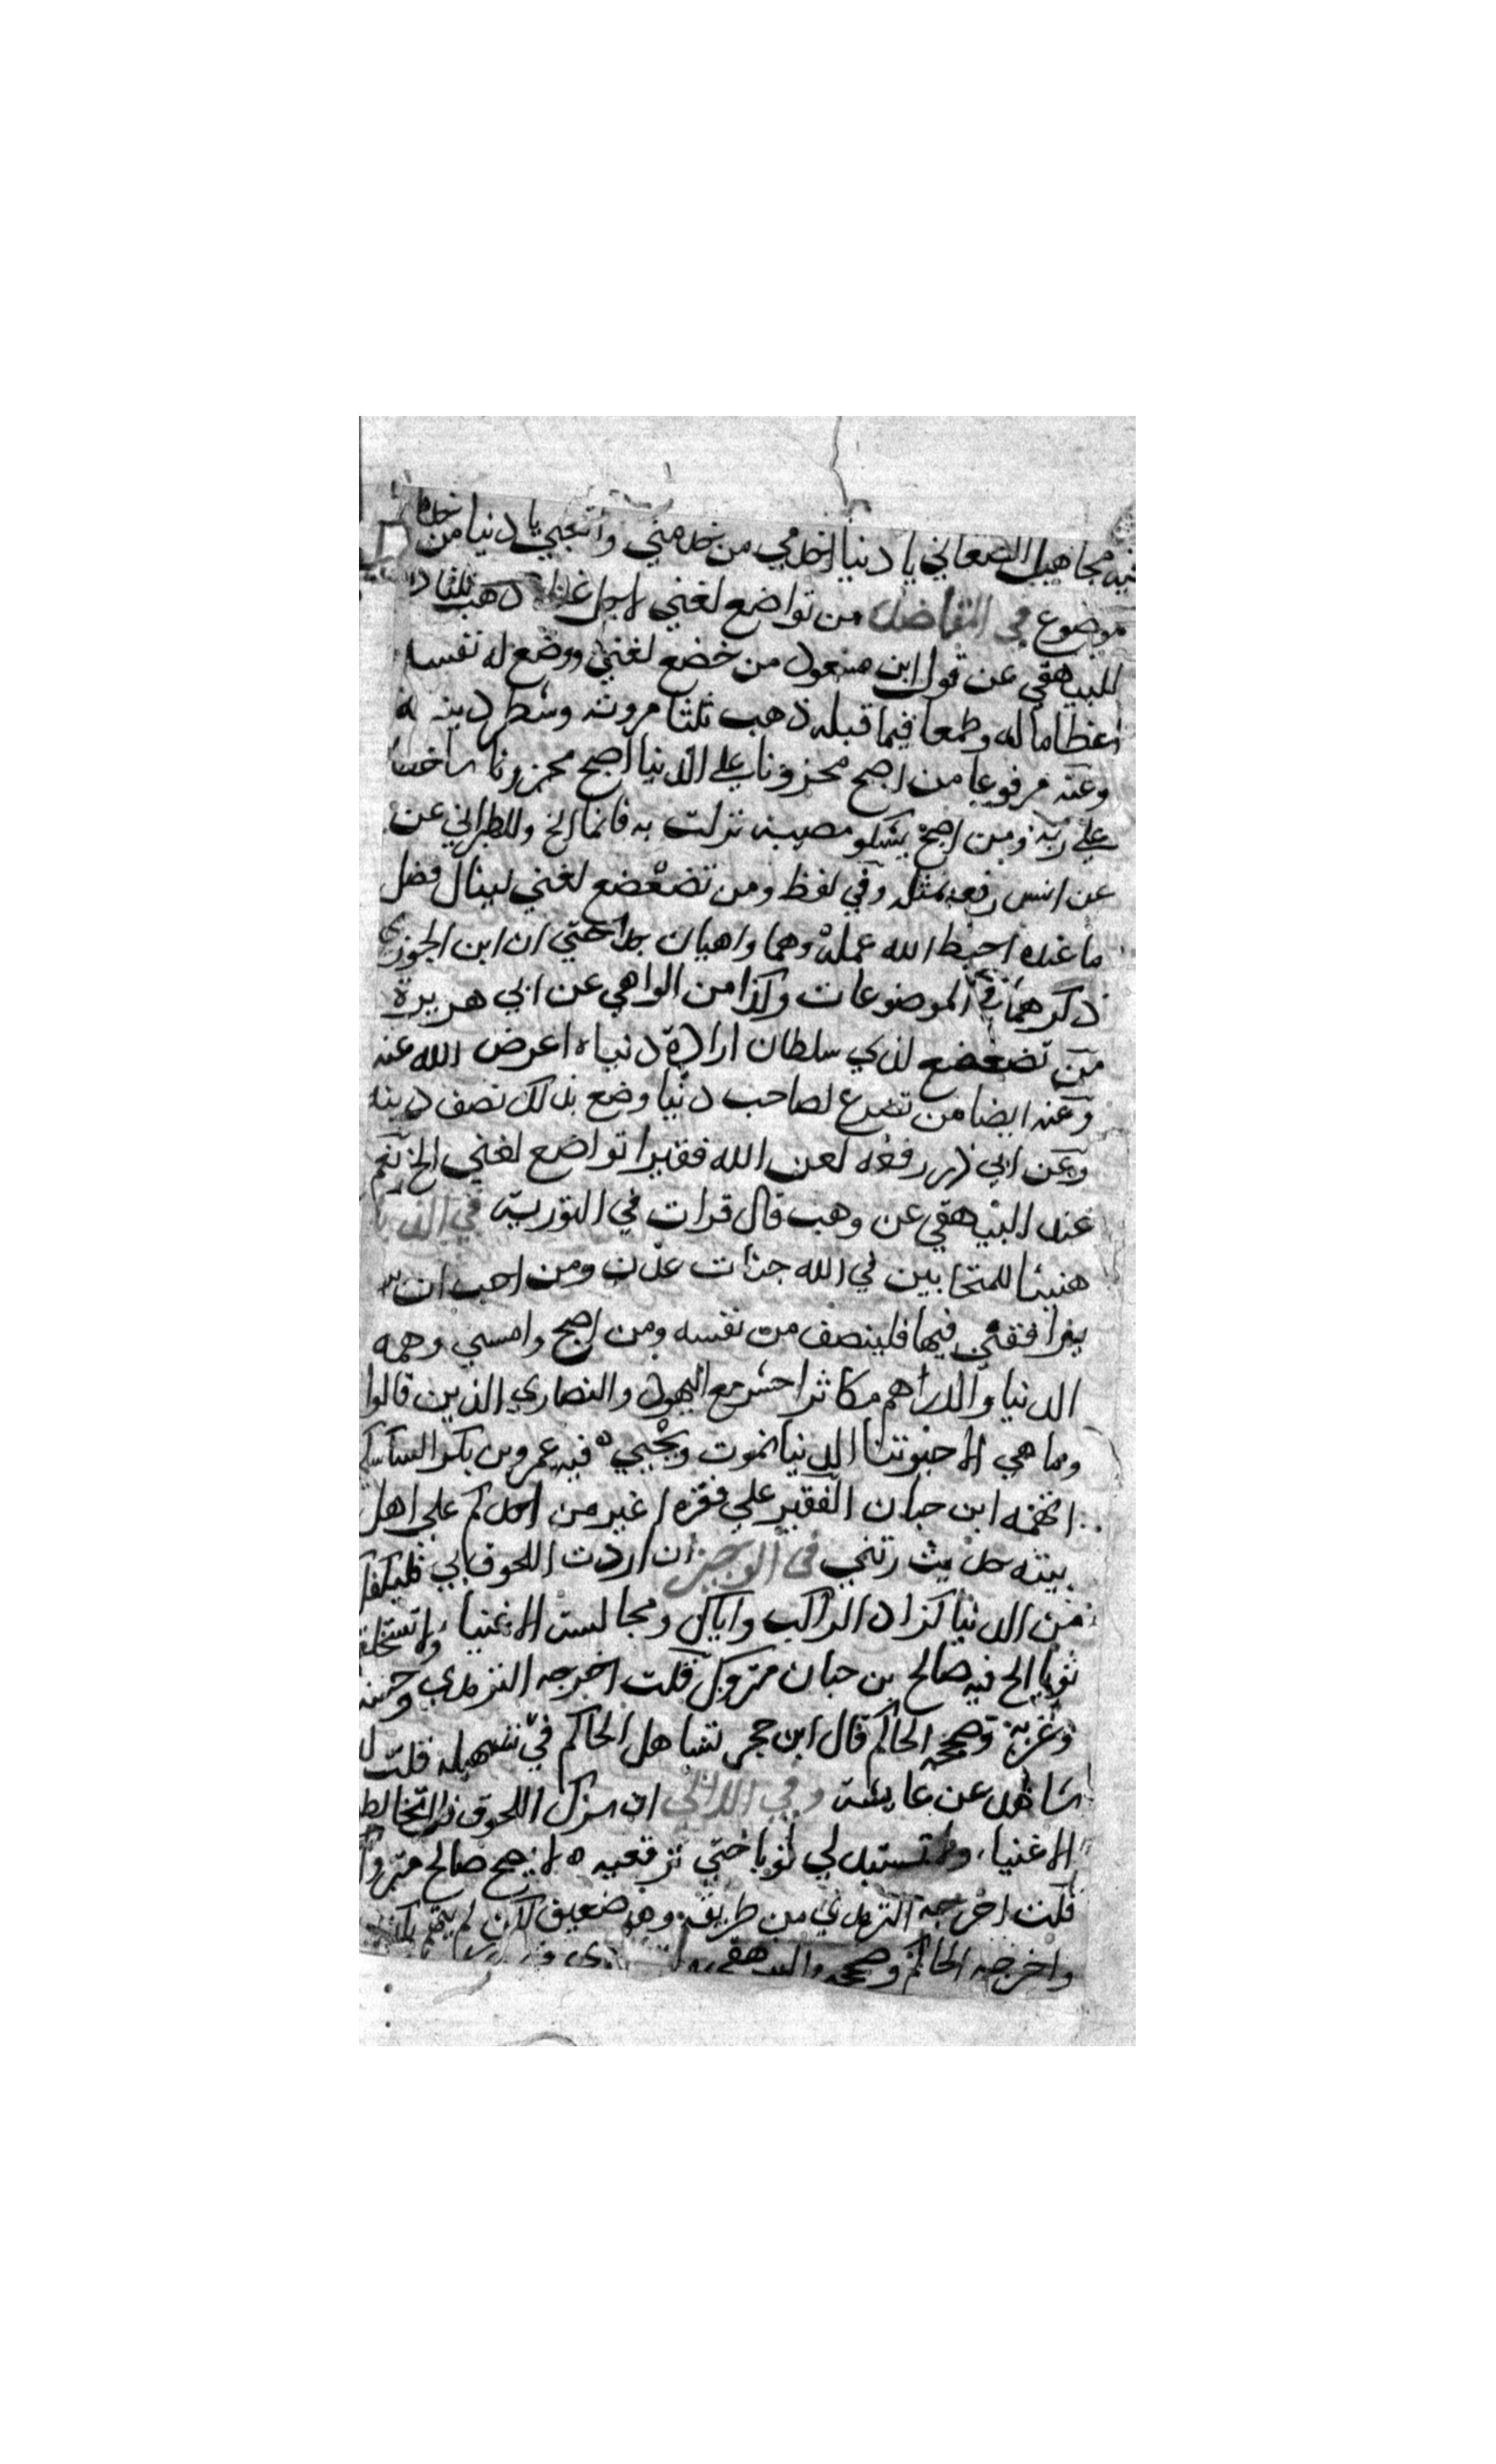 فيه مجاهيل الصغاني يا دنيا اخدمي من خدمني واتعبي يا دنيا من خدمك
موضوع في المقاصد من تواضع لغني لاجل غناه ذهب ثلثا د
للبيهقي عن قول ابن مسعود من خضع لغني ووضع له نفسه
اعظاما له وطمعا فيما قبله ذهب ثلثا مروته وشطر دينه
وعنه مرفوعا من اصبح محزونا على الدنيا اصبح محزونا ساخطا
على ربه ومن اصبح يشكو مصيبة نزلت به فانما الخ وللطبراني عن
عن انس رفعه بمثله وفي لفظ ومن تضعضع لغني لينال فضل
ما عنده احبط الله عمله وهما واهيان جدا حتي ان ابن الجوزي
ذكرهما في الموضوعات وكذا من الواهي عن ابي هريرة
من تضعضع لذي سلطان ارادة دنياه اعرض الله عنه
وعنه ايضا من تضرع لصاحب دنيا وضع بذلك نصف دينه
وعن ابي ذر رفعه لعن الله فقيرا تواضع لغني الخ نعم
عند البيهقي عن وهب قال قرات في التورية في الذيل
هنيئا للمتحابين في الله جنات عدن ومن احب ان
يرافقني فيها فلينصف من نفسه ومن اصبح وامسي وهمه
الدنيا والدراهم مكاثرا حشر مع اليهود والنصاري الذين قالوا
وما هي الا حيوتنا الدنيا نموت ونحيي فيه عمرو بن بكر السكسكي
اتهمه ابن حبان الفقير علي فقره اغير من احدكم علي اهل
بيته حديث رتني في الوجيز ان اردت اللحوق بي فليكفك
من الدنيا كزاد الراكب واياك ومجالست الاغنيا ولا تستخلق
ثوبا الخ فيه صالح بن حبان متروك قلت اخرجه الترمذي وحسنه
وغربه وصححه الحاكم قال ابن حجر تساهل الحاكم في تسهيله قلت
شاهد عن عايشة وفي اللآلي ان سرك اللحوق فلا تخالط
الاغنيا ولا تستبدلي ثوبا حتي ترقعيه لا يصح صالح متروك
قلت اخرجه الترمذي من طريقه وهو ضعيف لكن لم يتهم بكذب
واخرجه الحاكم وصححه والبيهقي